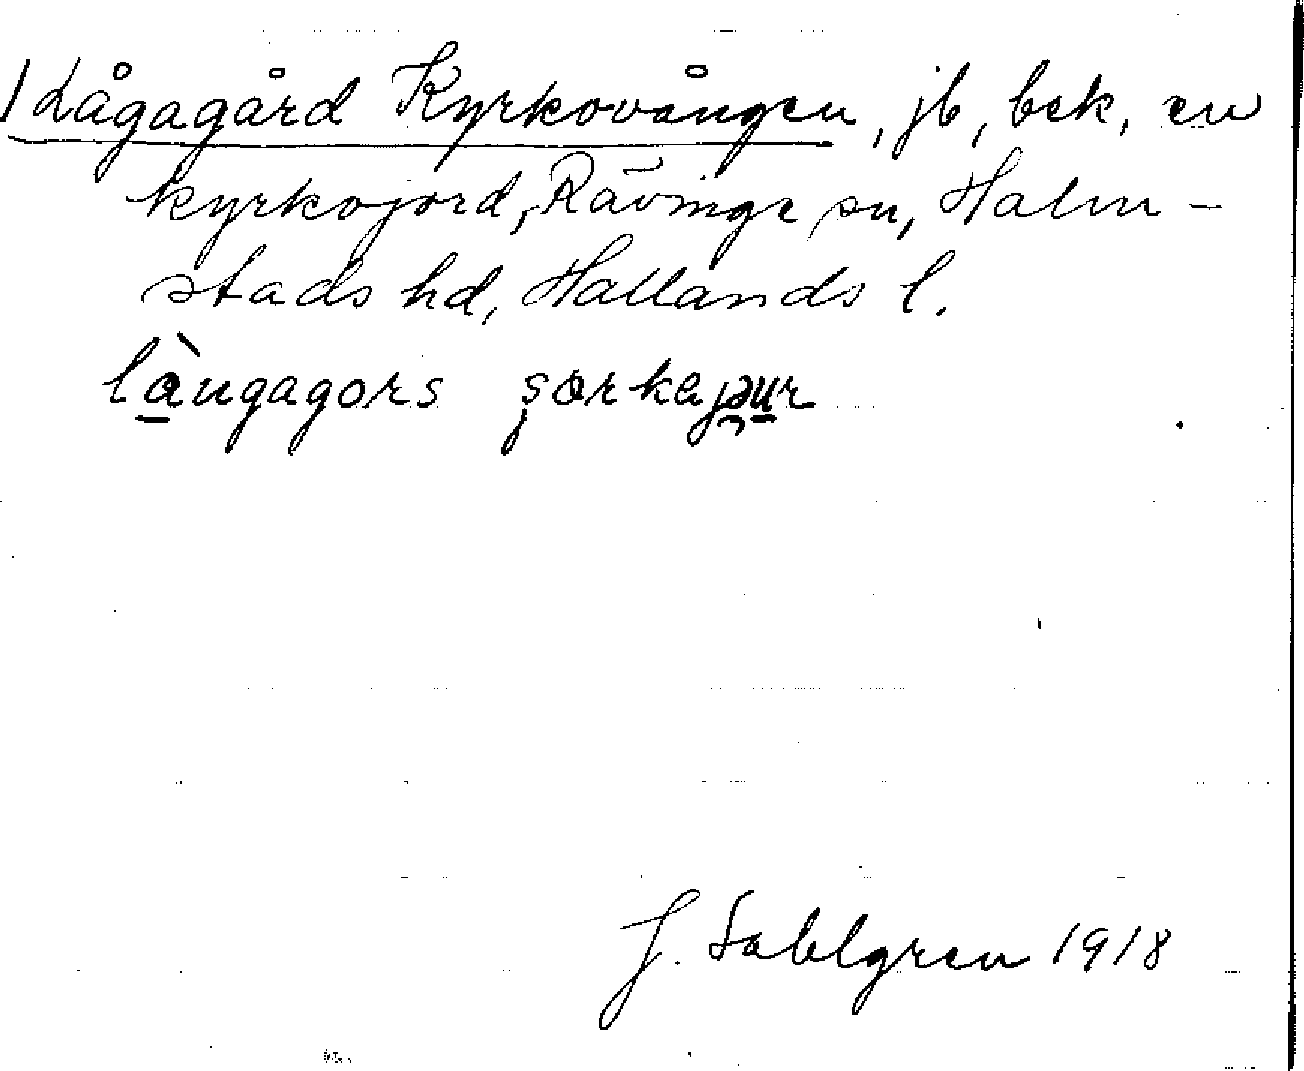 1 Lågagård Kyrkovången, jb, bek. en
kyrkojord, Rävinge sn, Halm-
stads hd, Hallands l.
làngagors
J. Sahlgren 1918